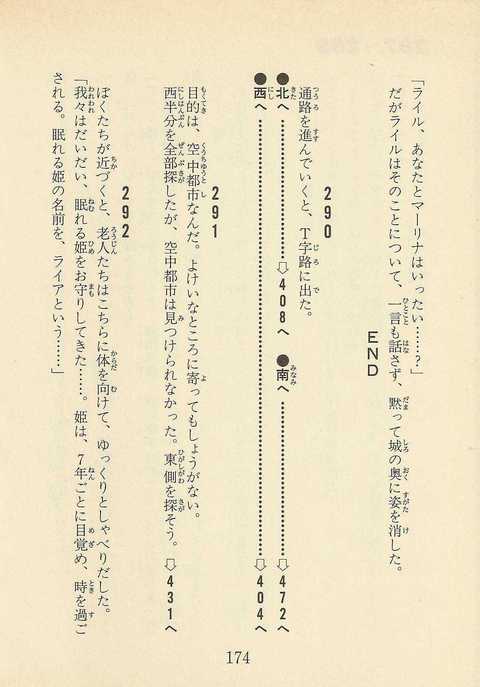 「ライル、あなたとマーリナはいったい……？」
だがライルはそのことについて、一言も話さず、黙って城の奥に姿を消した。
END
290
通路を進んでいくと、T字路に出た。
●北へ……………………⇨408へ　●南へ……………………⇨472へ
●西へ………………………………………………⇨404へ
291
目的は、空中都市なんだ。よけいなところに寄ってもしょうがない。
西半分を全部探したが、空中都市は見つけられなかった。東側を探そう。⇨431へ
292
ぼくたちが近づくと、老人たちはこちらに体を向けて、ゆっくりとしゃべりだした。
「我々はだいだい、眠れる姫をお守りしてきた……。姫は、7年ごとに目覚め、時を過ご
される。眠れる姫の名前を、ライアという……」
174